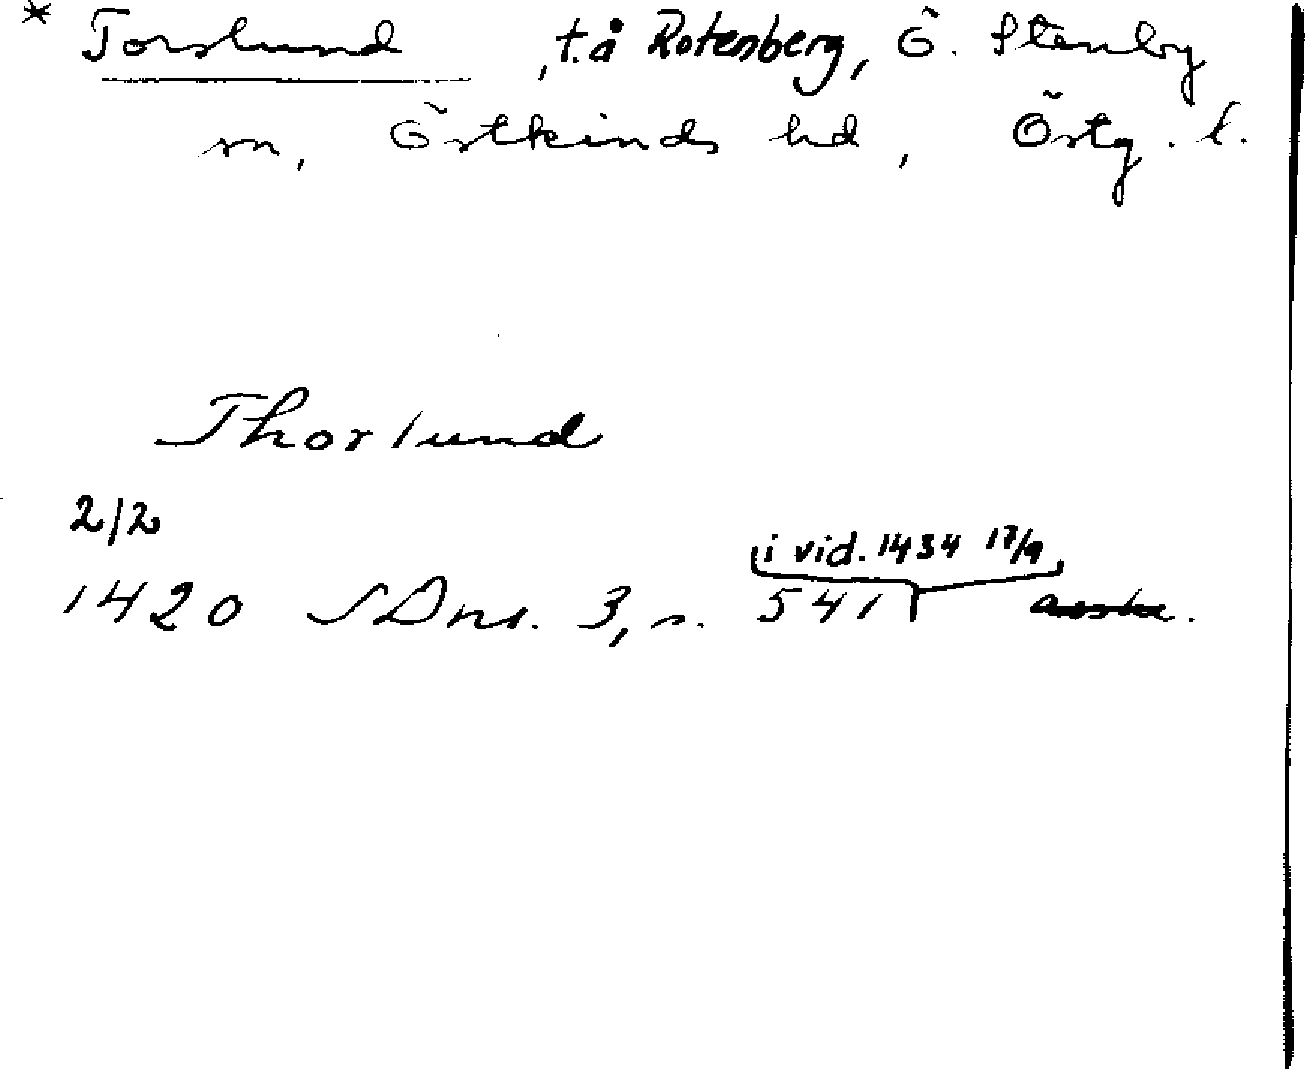 * Torslund , t. å Rotenberg, Ö. Stenby
sn, Östkinds hd, Östg. l.
Thorlund
2/2
i vid. 1434 17/9
1420 SDns. 3, s. 541